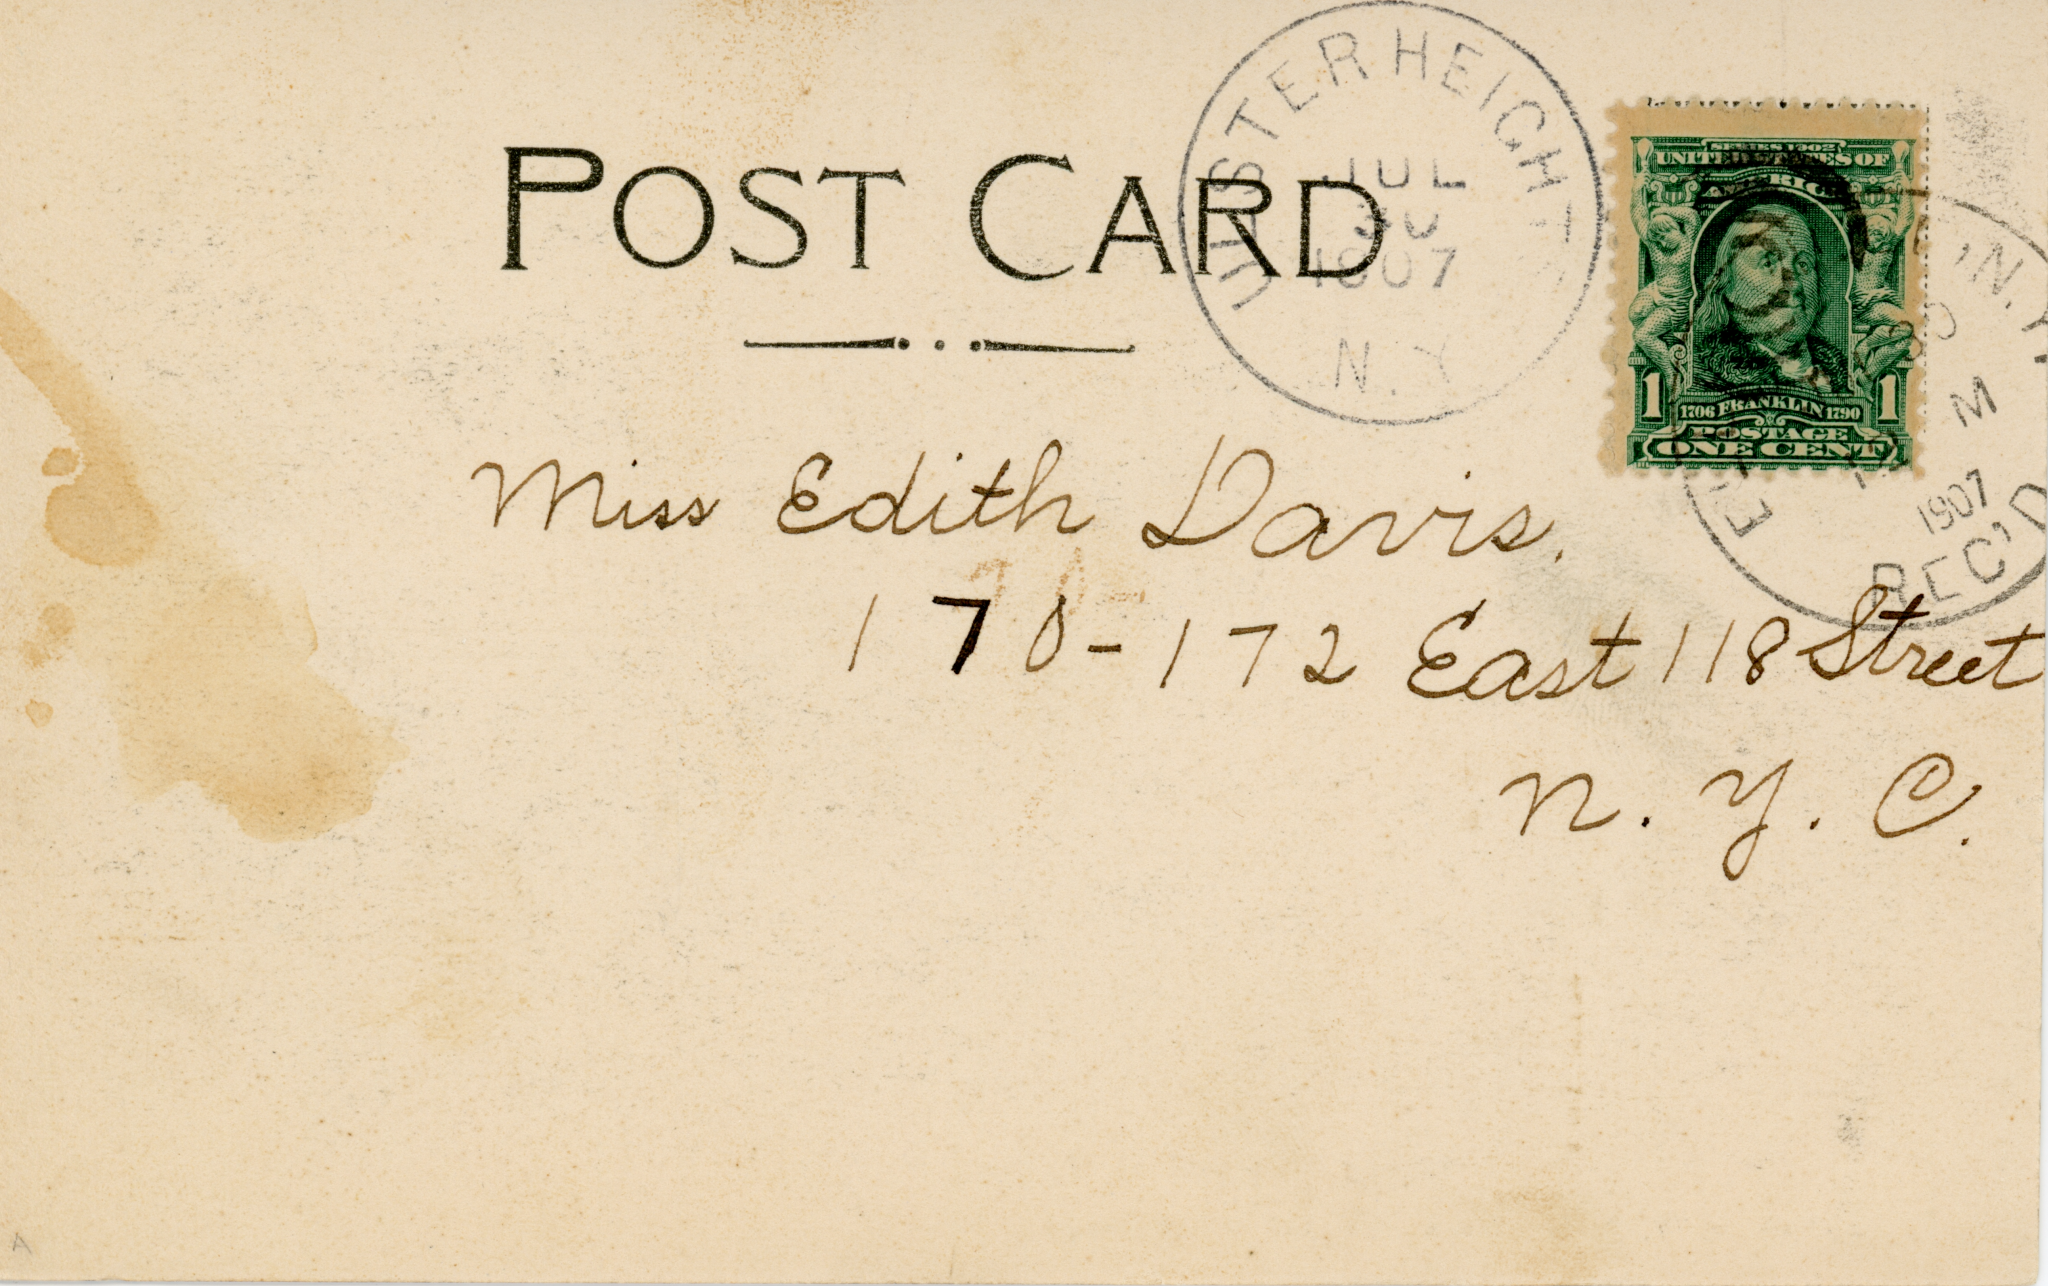 POST CARD
ULSTER HEIGHTS
JUL
30
1907
N.Y.
SERIES 1902
UNITED STATES OF
AMERICA
1 1706 FRANKLIN 1790 1
POSTAGE
ONE CENT
N.Y.
30
M
1907
REC'D
Miss Edith Davis.
170-172 East 118 Street
N. Y. C.